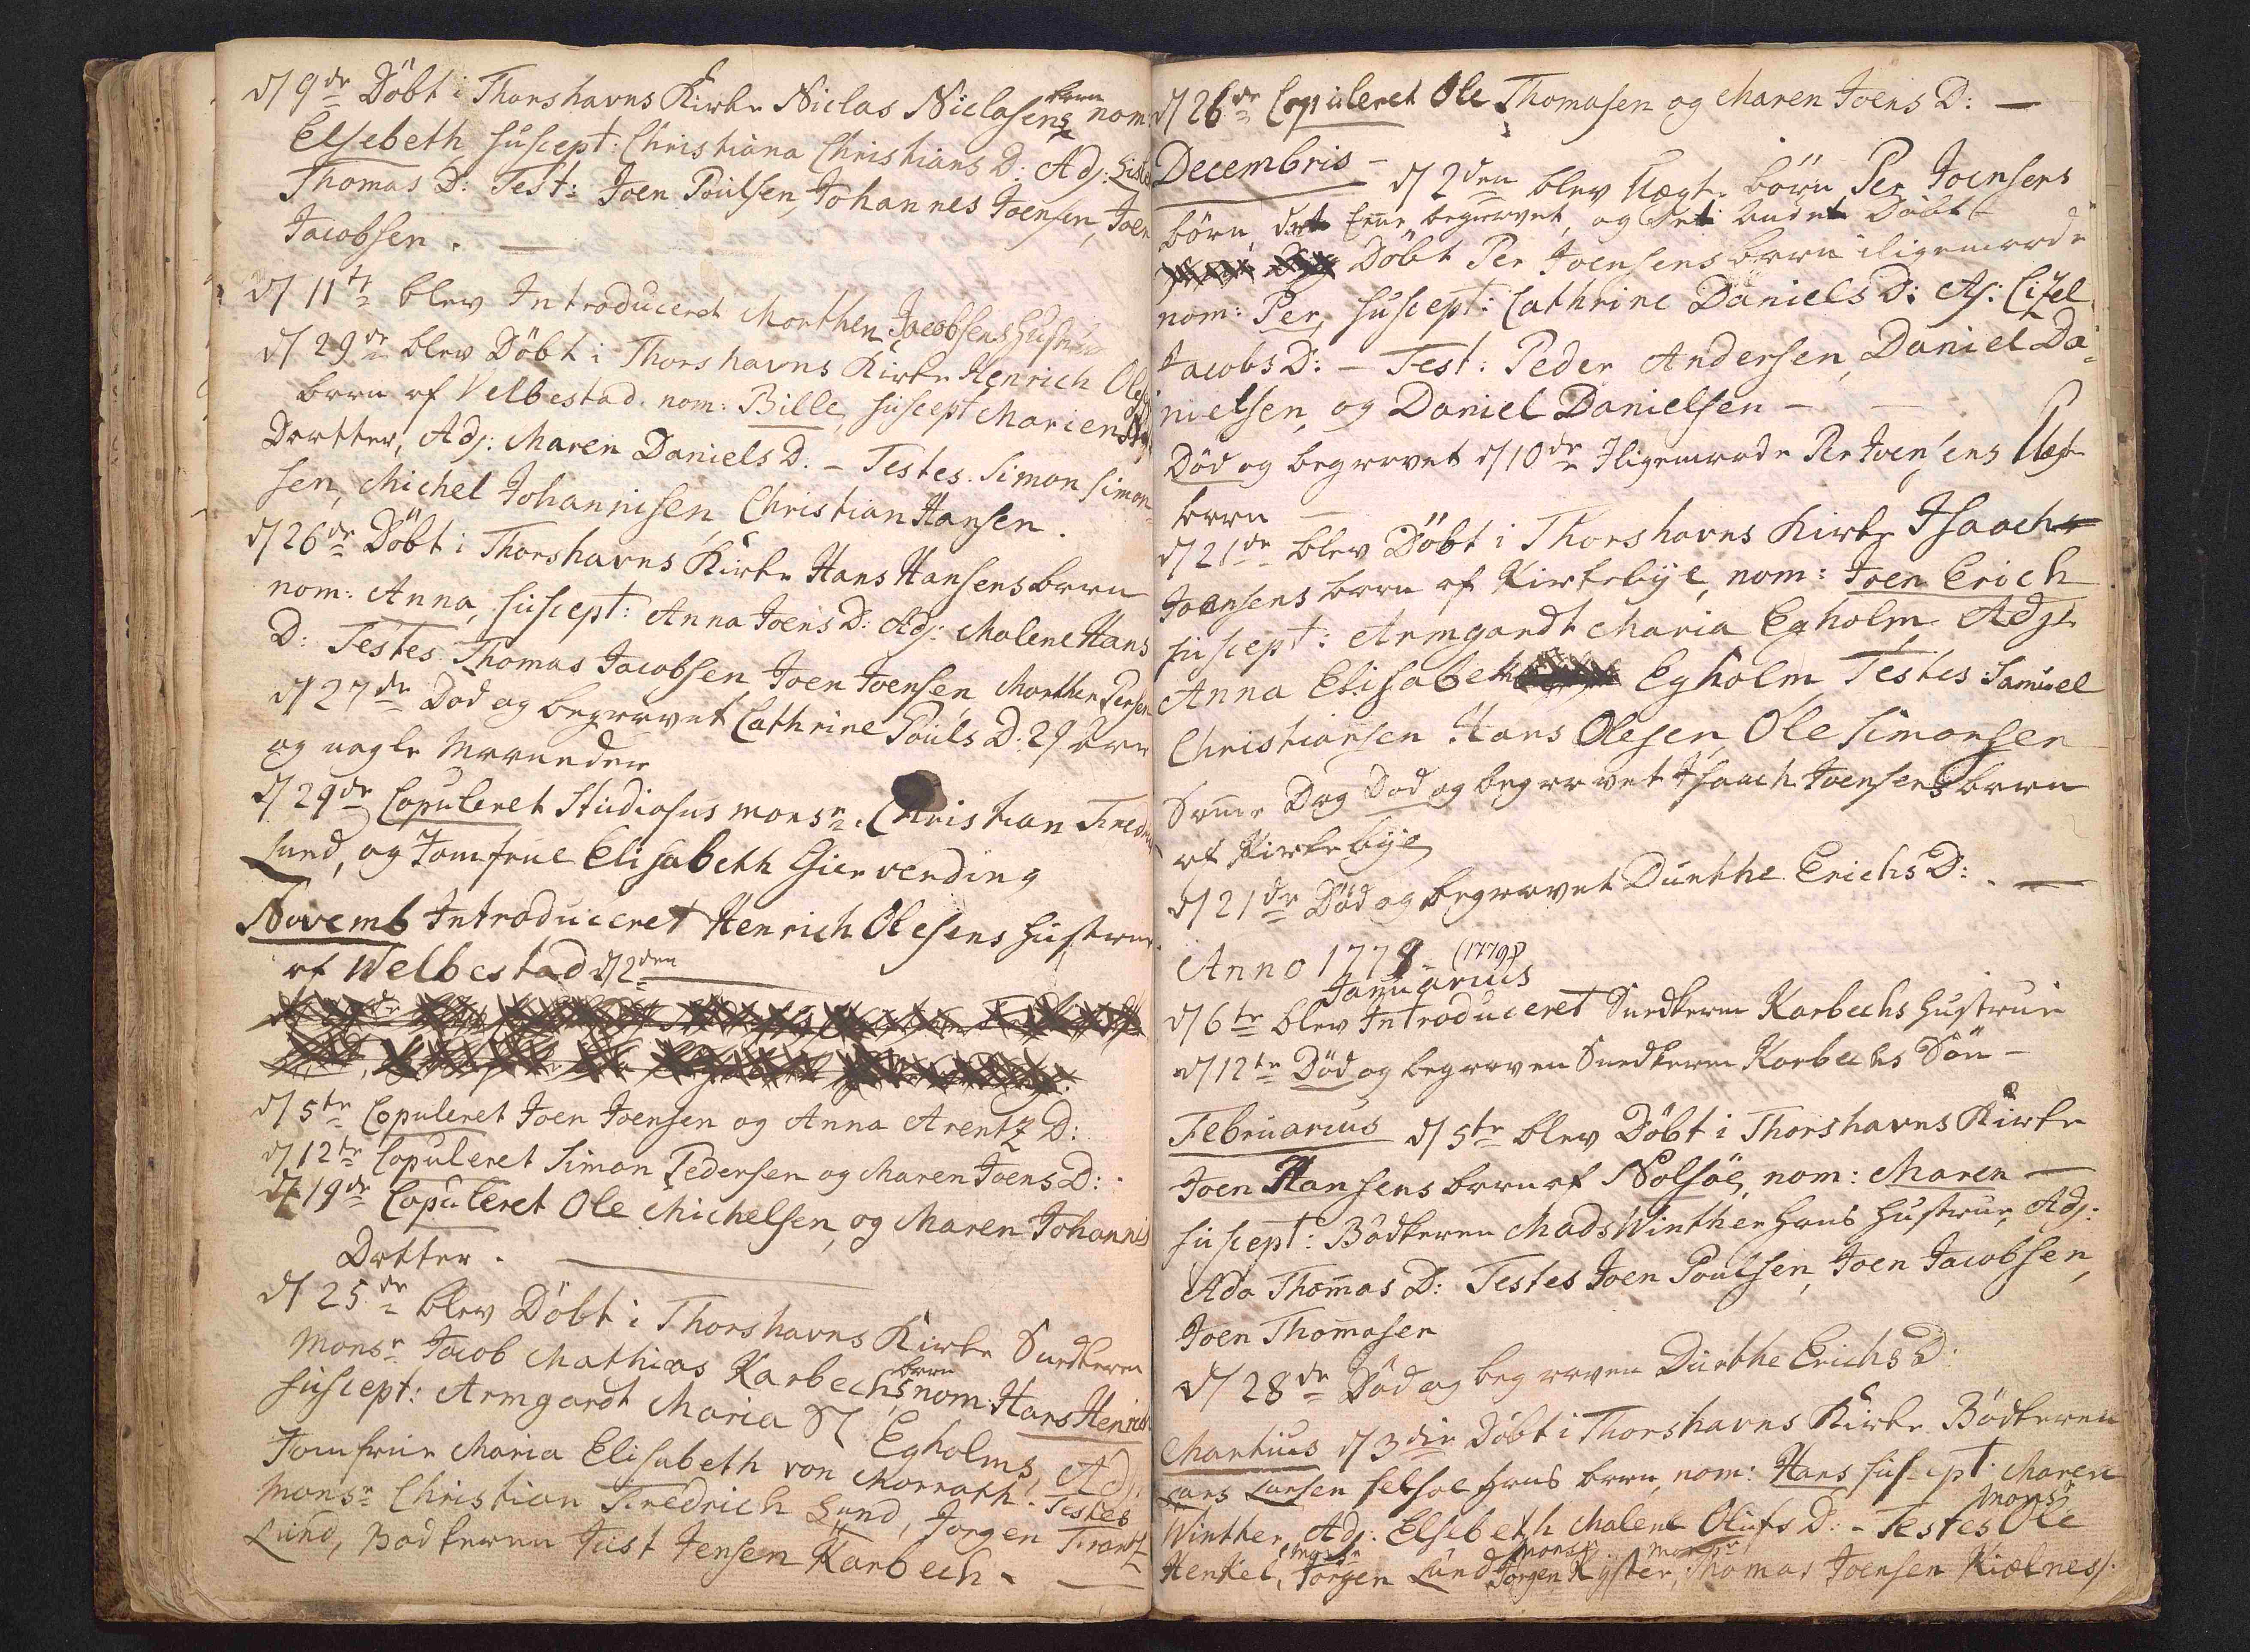 d/ 9de Döbt i Thorshavns Kirke Niclas Niclasens barn nom:
Elsebeth, suscept: Christiana Christians D: Adj:
Thomas D: Test: Joen Poulsen, Johannes Joensen, Joen
Jacobsen. —
d/ 11te blev Introduceret Morthen Jacobsens Hustrue
d/ 29de blev Döbt i Thorshavns Kirke Henrich Oles
barn af Velbestad nom: Bille, suscept Mariens
Daatter, Adj: Maren Daniels D. – Testes. Simon Simon-
sen, Michel Johannisen, Christian Hansen.
d/ 26de Döbt i Thorshavns Kirke Hans Hansens barn
nom: Anna, suscept: Anna Joens D: Adj: Malene Hans
D: Testes Thomas Jacobsen, Joen Joensen, Morthen Persen
d/ 27de Död og begravet Cathrine Pouls D: 29 Aar
og nogle Maaneder
d/ 29de Copuleret Studiosus Monsr. Christian Fredr
Lund, og Jomfrue Elisabeth Gierverding
Novemb Introduceret Henrich Olesens Hustrue
af Welbestad d/2den
d/ 5te Copuleret Joen Joensen og Anna Arentz D:
d/ 12te Copuleret Simon Pedersen og Maren Joens D:
d/ 19de Copuleret Ole Michelsen, og Maren Johannis
Datter. —
d/ 25de blev Döbt i Thorshavns Kirke Snedkeren
Monsr Jacob Mathias Karbechs barn, nom: Hans Henrich
suscept: Armgardt Maria Sl Egholms, Adj:
Jomfrue Maria Elisabeth von Morrath. Testes
Monsr Christian Fredrich Lund, Jorgen Frantz
Lund, Bödkeren Just Jensen Karbech. —
d/ 26de Copuleret Ole Thomasen og Maren Joens D: —
Decembris – d/ 2den blev Uægte börn Per Joensens
börn, det Eene begravet, og det andet Döbt
Döbt Per Joensens barn iligemaade
nom: Per, suscept: Cathrine Daniels D: Aj: Cizel
Jacobs D: – Test: Peder Andersen, Daniel Da-
nielsen, og Daniel Danielsen –
Död og begravet d/ 10de Iligemaade Per Joensens Uægte
barn –
d/ 21de blev Döbt i Thorshavns Kirke Isaach
Joensens barn af Kirkebÿe, nom: Joen Erich
suscept: Armgardt Maria Egholm Adj:
Anna Elisabeth Egholm Testes: Samuel
Christiansen Hans Olesen, Ole Simonsen
Samme Dag Död og begravet Isaach Joensens barn
af Kirkebÿe
d/ 21de Död og begravet Durthe Erichs D: —
Anno 1778. (1779?)
Januarius
d/ 6te blev Introduceret Snedkeren Karbechs Hustrue
d/ 12te Död og begraven Snedkeren Karbechs Sön –
Februarius d/ 5te blev Döbt i Thorshavns Kirke
Joen Hansens barn af Nolsöe, nom: Maren —
suscept: Bödkeren Mads Winther hans Hustrue, Adj:
Ada Thomas D: Testes Joen Poulsen, Joen Jacobsen,
Joen Thomasen
d/ 28de Död og begraven Durthe Erichs D:
Martius d/ 3die Döbt i Thorshavns Kirke Bödkeren
Lars Larsen hans barn, nom: Hans suscept: Maren
Winther, Adj: Elsebeth Malene Olufs D: – Testes Monsr Ole
Henkel, Monsr Jörgen Lund, Monsr Jörgen Kyster, Monsr Thomas Joensen Kiælnes: